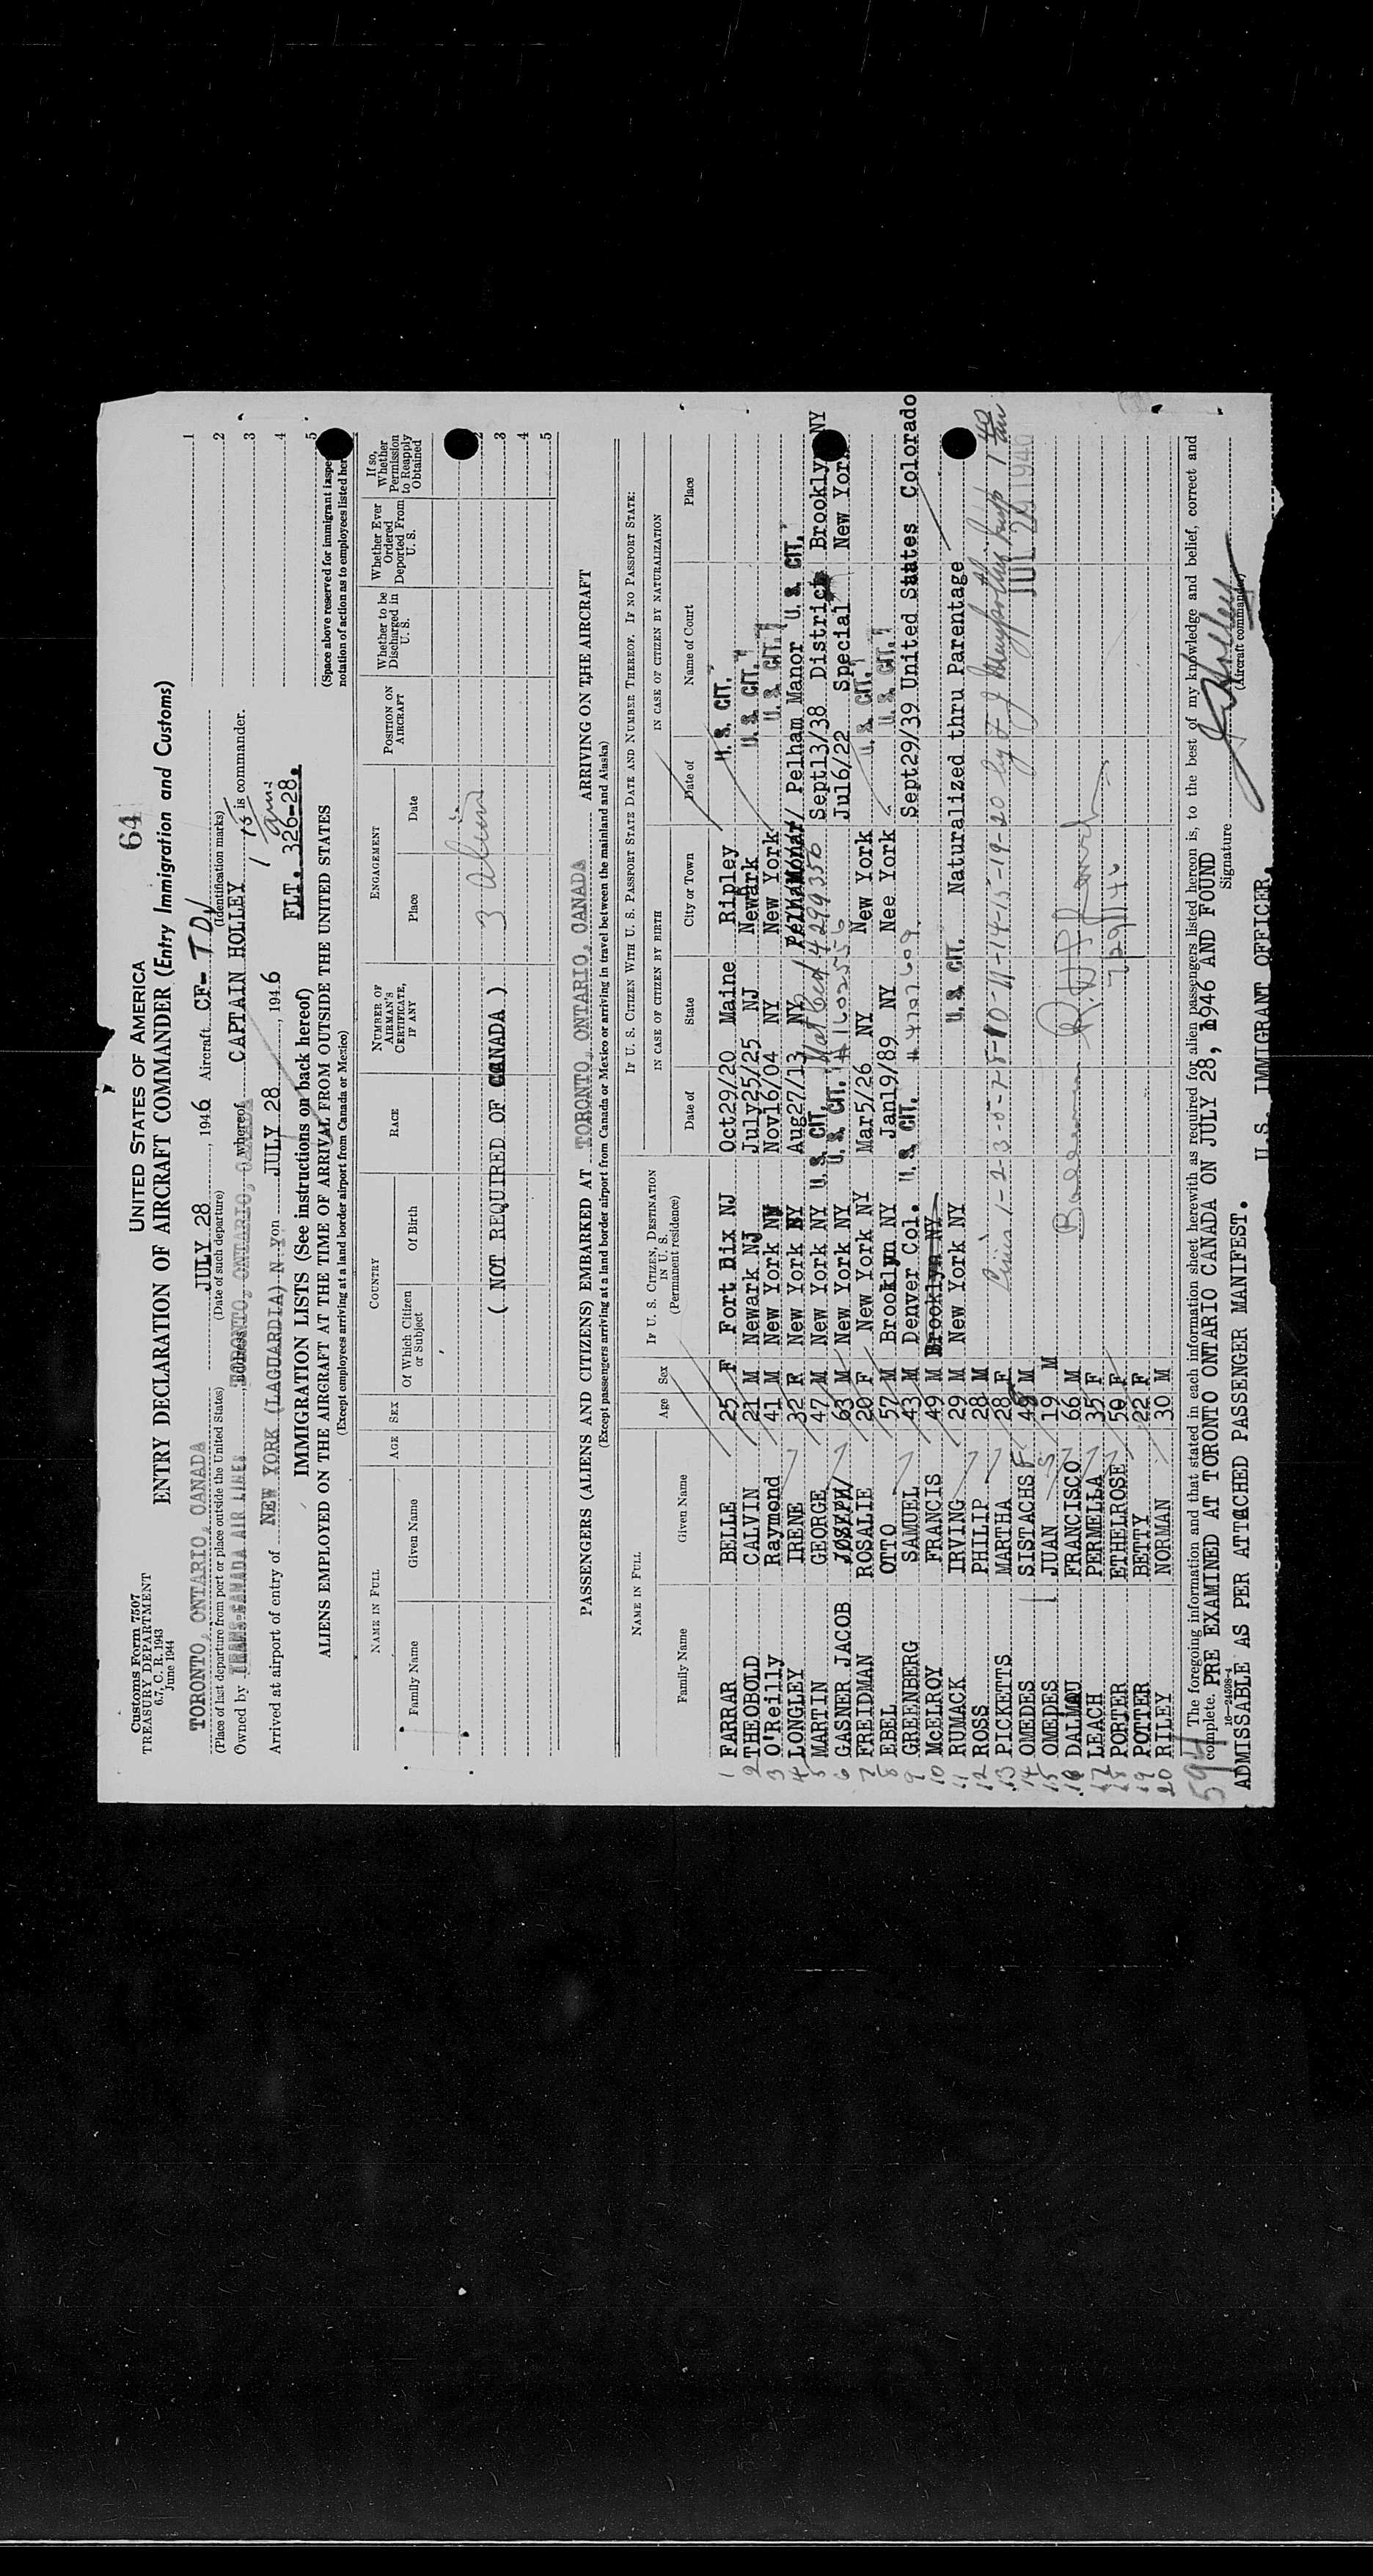 Customs Form 7507
TREASURY DEPARTMENT
6.7, C. R. 1943
June 1944
UNITED STATES OF AMERICA
64
ENTRY DECLARATION OF AIRCRAFT COMMANDER (Entry Immigration and Customs)
TORONTO, ONTARIO, CANADA JULY 28, 1946 Aircraft CF- TDV
(Place of last departure from port or place outside the United States) (Date of such departure) (Identification marks)
Owned by TRANS-CANADA AIR LINES TORONTO, ONTARIO, CANADA whereof CAPTAIN HOLLEY is commander.
Arrived at airport of entry of NEW YORK (LAGUARDIA) N Y on JULY 28, 1946
FLT. 326-28.
1
2
3
4
5
(Space above reserved for immigrant inspe
notation of action as to employees listed her
IMMIGRATION LISTS (See instructions on back hereof)
ALIENS EMPLOYED ON THE AIRCRAFT AT THE TIME OF ARRIVAL FROM OUTSIDE THE UNITED STATES
(Except employees arriving at a land border airport from Canada or Mexico)
NAME IN FULL AGE SEX COUNTRY RACE NUMBER OF AIRMAN'S CERTIFICATE, IF ANY ENGAGEMENT POSITION ON AIRCRAFT Whether to be Discharged in U. S. Whether Ever Ordered Deported From U. S. If so, Whether Permission to Reapply Obtained
Family Name Given Name Of Which Citizen or Subject Of Birth Place Date
3
2
( NOT REQUIRED OF CANADA ) 3
4
5
PASSENGERS (ALIENS AND CITIZENS) EMBARKED AT TORONTO, ONTARIO, CANADA ARRIVING ON THE AIRCRAFT
(Except passengers arriving at a land border airport from Canada or Mexico or arriving in travel between the mainland and Alaska)
NAME IN FULL Age Sex IF U. S. CITIZEN, DESTINATION IN U. S. (Permanent residence) IF U. S. CITIZEN WITH U. S. PASSPORT STATE DATE AND NUMBER THEREOF. IF NO PASSPORT STATE:
IN CASE OF CITIZEN BY BIRTH IN CASE OF CITIZEN BY NATURALIZATION
Family Name Given Name Date of State City or Town Date of Name of Court Place
1 FARRAR BELLE 25 F Fort Dix NJ Oct29/20 Maine Ripley U. S. CIT.
2 THEOBOLD CALVIN 21 M Newark NJ July25/25 NJ Newark U. S. CIT.
3 O'Reilly Raymond 41 M New York NY Nov16/04 NY New York U. S. CIT.
4 LONGLEY IRENE 32 F New York NY Aug27/13 NY Pelham Manor U. S. CIT.
5 MARTIN GEORGE 47 M New York NY U. S. CIT. Nat Cert 4299356 Sept13/38 District Brooklyn NY
6 GASNER JACOB 63 M New York NY U. S. CIT. Jul6/22 Special New York
7 FREIDMAN ROSALIE 20 F New York NY Mar5/26 NY New York U. S. CIT.
8 EBEL OTTO 57 M Brooklyn NY Jan19/89 NY Nee York U. S. CIT.
9 GREENBERG SAMUEL 43 M Denver Col. U. S. CIT. Sept29/39 United States Colorado
10 McELROY FRANCIS 49 M Brooklyn NY
11 RUMACK IRVING 29 M New York NY U. S. CIT. Naturalized thru Parentage
12 ROSS PHILIP 28 M
13 PICKETTS MARTHA 28 F
14 OMEDES SISTACHS F 48 M JUL 28 1946
15 OMEDES JUAN S 19 M
16 DALMAU FRANCISCO 66 M
17 LEACH PERMELLA 35 F
18 PORTER ETHELROSE 50 F 7/29/46
19 POTTER BETTY 22 F
20 RILEY NORMAN 30 M
594 The foregoing information and that stated in each information sheet herewith as required for alien passengers listed hereon is, to the best of my knowledge and belief, correct and
complete. PRE EXAMINED AT TORONTO ONTARIO CANADA ON JULY 28, 1946 AND FOUND
16—24598-4 Signature (Aircraft commander)
ADMISSABLE AS PER ATTACHED PASSENGER MANIFEST.
U.S. IMMIGRANT OFFICER.